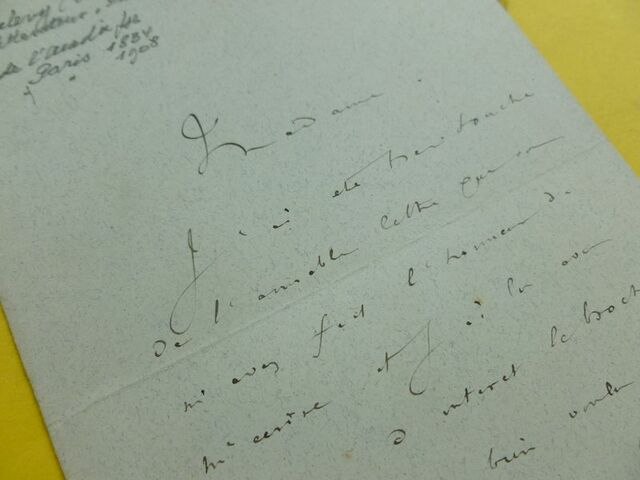 de l'académ fse
Paris 1834
+ " 1908
Madame,
J'ai été bien touché
de l'aimable lettre que vou
m'avez fait l'honneur de
m'ecrire et J'ai lu avec
d interet la broch
bien voulu